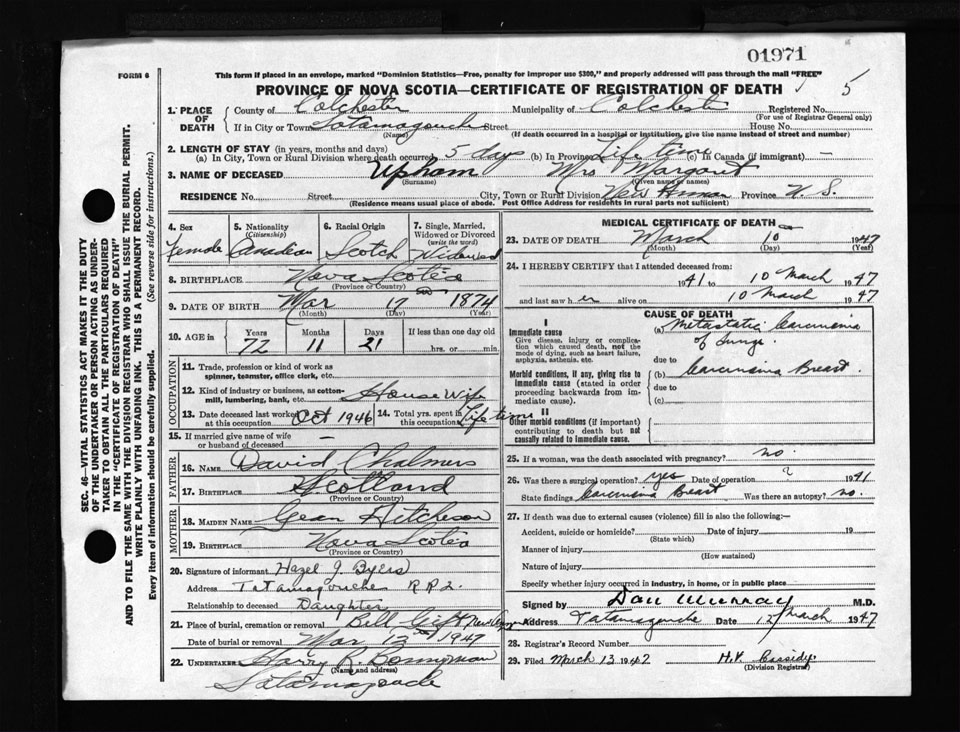 01971
5
FORM 6
This form if placed in an envelope, marked "Dominion Statistics—Free, penalty for improper use $300," and properly addressed will pass through the mail "FREE"
PROVINCE OF NOVA SCOTIA—CERTIFICATE OF REGISTRATION OF DEATH
SEC. 46—VITAL STATISTICS ACT MAKES IT THE DUTY
OF THE UNDERTAKER OR PERSON ACTING AS UNDER-
TAKER TO OBTAIN ALL THE PARTICULARS REQUIRED
IN THE "CERTIFICATE OF REGISTRATION OF DEATH"
AND TO FILE THE SAME WITH THE DIVISION REGISTRAR WHO SHALL ISSUE THE BURIAL PERMIT.
WRITE PLAINLY WITH UNFADING INK. THIS IS A PERMANENT RECORD.
Every item of information should be carefully supplied. (See reverse side for instructions.)
1. PLACE OF DEATH County of Colchester Municipality of Colchester Registered No.
(For use of Registrar General only)
If in City or Town Tatamagouche Street House No.
(Name) (If death occurred in a hospital or institution, give the name instead of street and number)
2. LENGTH OF STAY (in years, months and days)
(a) In City, Town or Rural Division where death occurred 5 days (b) In Province Life time (c) In Canada (if immigrant) —
3. NAME OF DECEASED Upham Mrs Margaret
(Surname) (Given name or names)
RESIDENCE No. Street City, Town or Rural Division New Annan Province N. S.
(Residence means usual place of abode. Post Office Address for residents in rural parts not sufficient)
4. Sex Female
5. Nationality (Citizenship) Canadian
6. Racial Origin Scotch
7. Single, Married, Widowed or Divorced (write the word) Widowed
8. BIRTHPLACE Nova Scotia
(Province or Country)
9. DATE OF BIRTH Mar 17 1874
(Month) (Day) (Year)
10. AGE in Years Months Days If less than one day old
72 11 21 hrs. or min.
OCCUPATION
11. Trade, profession or kind of work as spinner, teamster, office clerk, etc.
12. Kind of industry or business, as cotton-mill, lumbering, bank, etc. House wife
13. Date deceased last worked at this occupation Oct 1946 14. Total yrs. spent in this occupation Life time
15. If married give name of wife or husband of deceased —
FATHER
16. NAME David Chalmers
17. BIRTHPLACE Scotland
(Province or Country)
MOTHER
18. MAIDEN NAME Jean Aitcheson
19. BIRTHPLACE Nova Scotia
(Province or Country)
20. Signature of informant Hazel J. Byers
Address Tatamagouche R R 2.
Relationship to deceased Daughter
21. Place of burial, cremation or removal Bell Gift New Annan
Date of burial or removal Mar 13th 1947
22. UNDERTAKER Harry R. Bonnyman
(Name and address)
Tatamagouche
MEDICAL CERTIFICATE OF DEATH
23. DATE OF DEATH March 10 1947
(Month) (Day) (Year)
24. I HEREBY CERTIFY that I attended deceased from:
1941 to 10 March 1947
and last saw her alive on 10 March 1947
CAUSE OF DEATH
I
Immediate cause (a) Metastatic Carcinoma of Lungs.
Give disease, injury or complication which caused death, not the mode of dying, such as heart failure, asphyxia, asthenia, etc.
due to
Morbid conditions, if any, giving rise to immediate cause (stated in order proceeding backwards from immediate cause). (b) Carcinoma Breast.
due to
(c)
II
Other morbid conditions (if important) contributing to death but not causally related to immediate cause.
25. If a woman, was the death associated with pregnancy? no.
26. Was there a surgical operation? yes Date of operation ? 1941
State findings Carcinoma Breast Was there an autopsy? no.
27. If death was due to external causes (violence) fill in also the following:—
Accident, suicide or homicide? Date of injury 19
(State which)
Manner of injury
(How sustained)
Nature of injury
Specify whether injury occurred in industry, in home, or in public place
Signed by Dan Murray M.D.
Address Tatamagouche Date 12 March 1947
28. Registrar's Record Number
29. Filed March 13 1947 H.V. Cassidy
(Division Registrar)